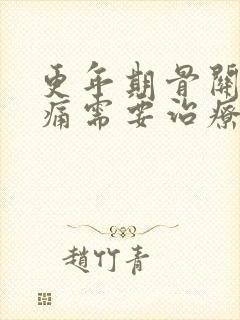 更年期骨關
痛需要治療
趙竹青